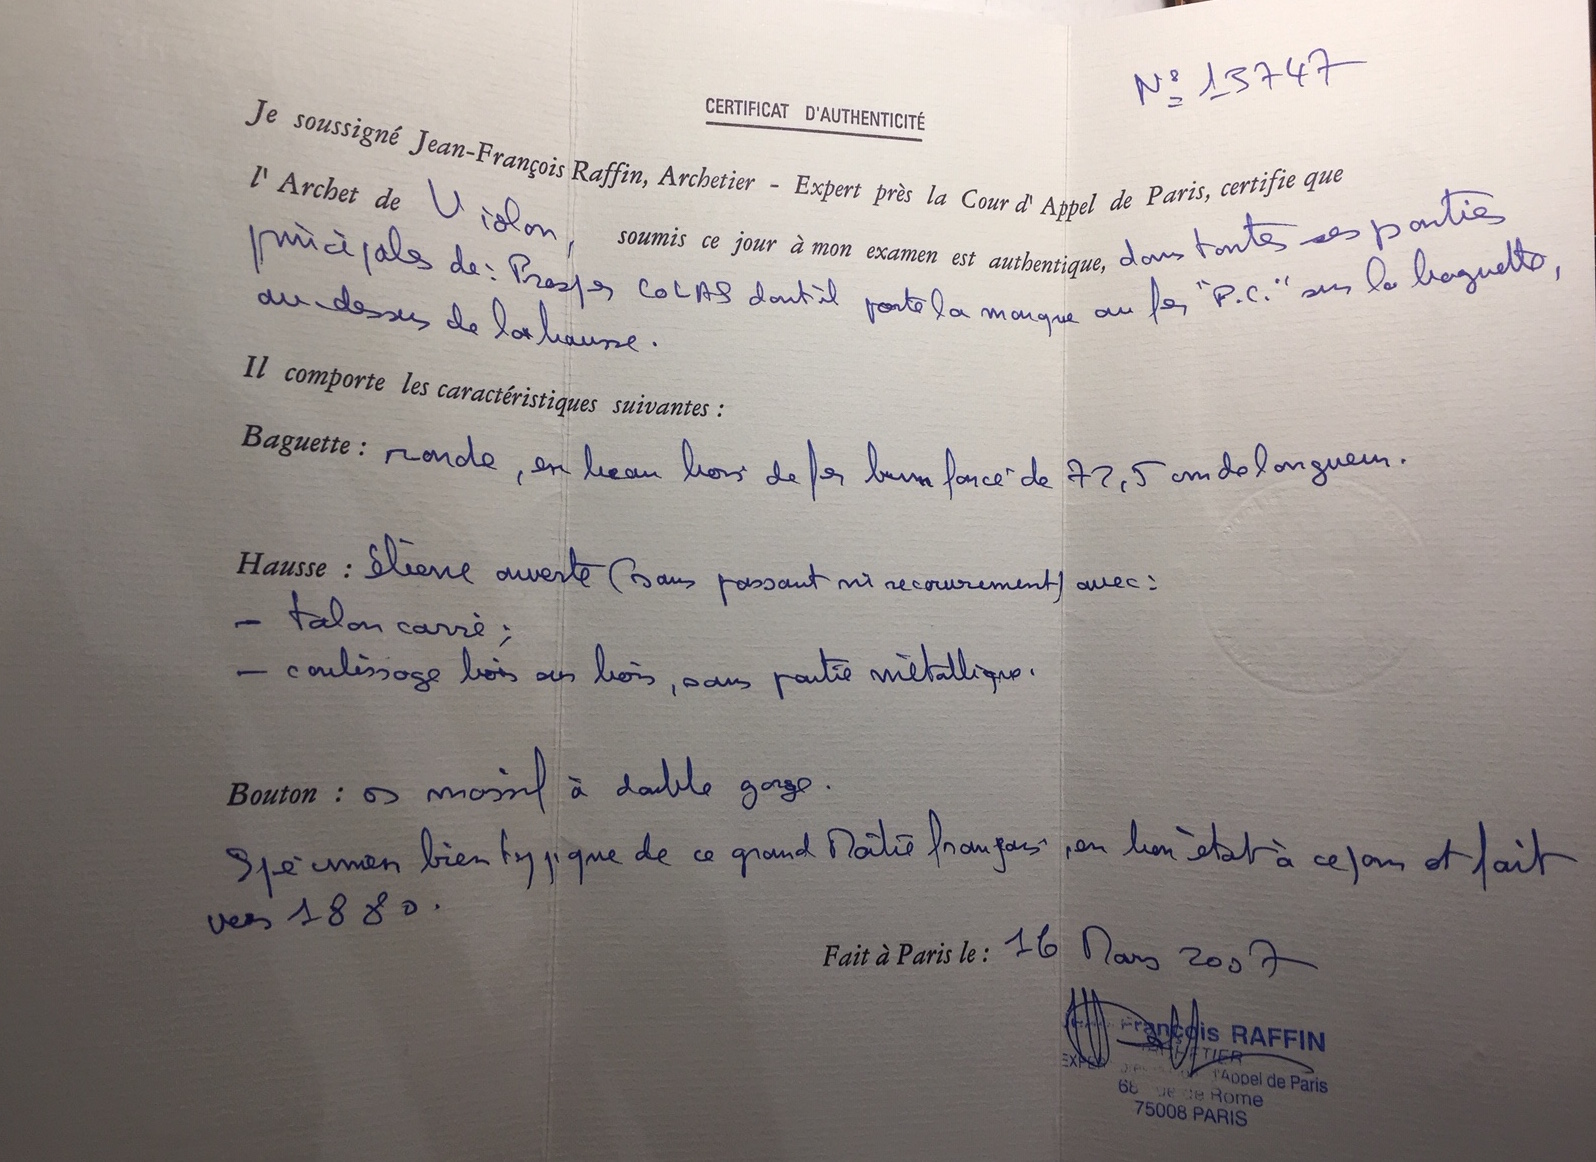 Nº 13747
CERTIFICAT D'AUTHENTICITÉ
Je soussigné Jean-François Raffin, Archetier - Expert près la Cour d'Appel de Paris, certifie que
l'Archet de Violon, soumis ce jour à mon examen est authentique, dans toutes ses parties
principales de : Prosper COLAS dont il porte la marque au fer "P.C." sur la baguette,
au-dessus de la hausse.
Il comporte les caractéristiques suivantes :
Baguette : ronde, en beau bois de fer brun foncé de 72,5 cm de longueur.
Hausse : ébène ouverte (sans passant ni recouvrement) avec :
- talon carré ;
- coulissage bois sur bois, sans partie métallique.
Bouton : os massif à double gorge.
Spécimen bien typique de ce grand Maître français, en bon état à ce jour et fait
vers 1880.
Fait à Paris le : 16 Mars 2007
François RAFFIN
ARCHETIER
EXPERT l'Appel de Paris
68 de Rome
75008 PARIS